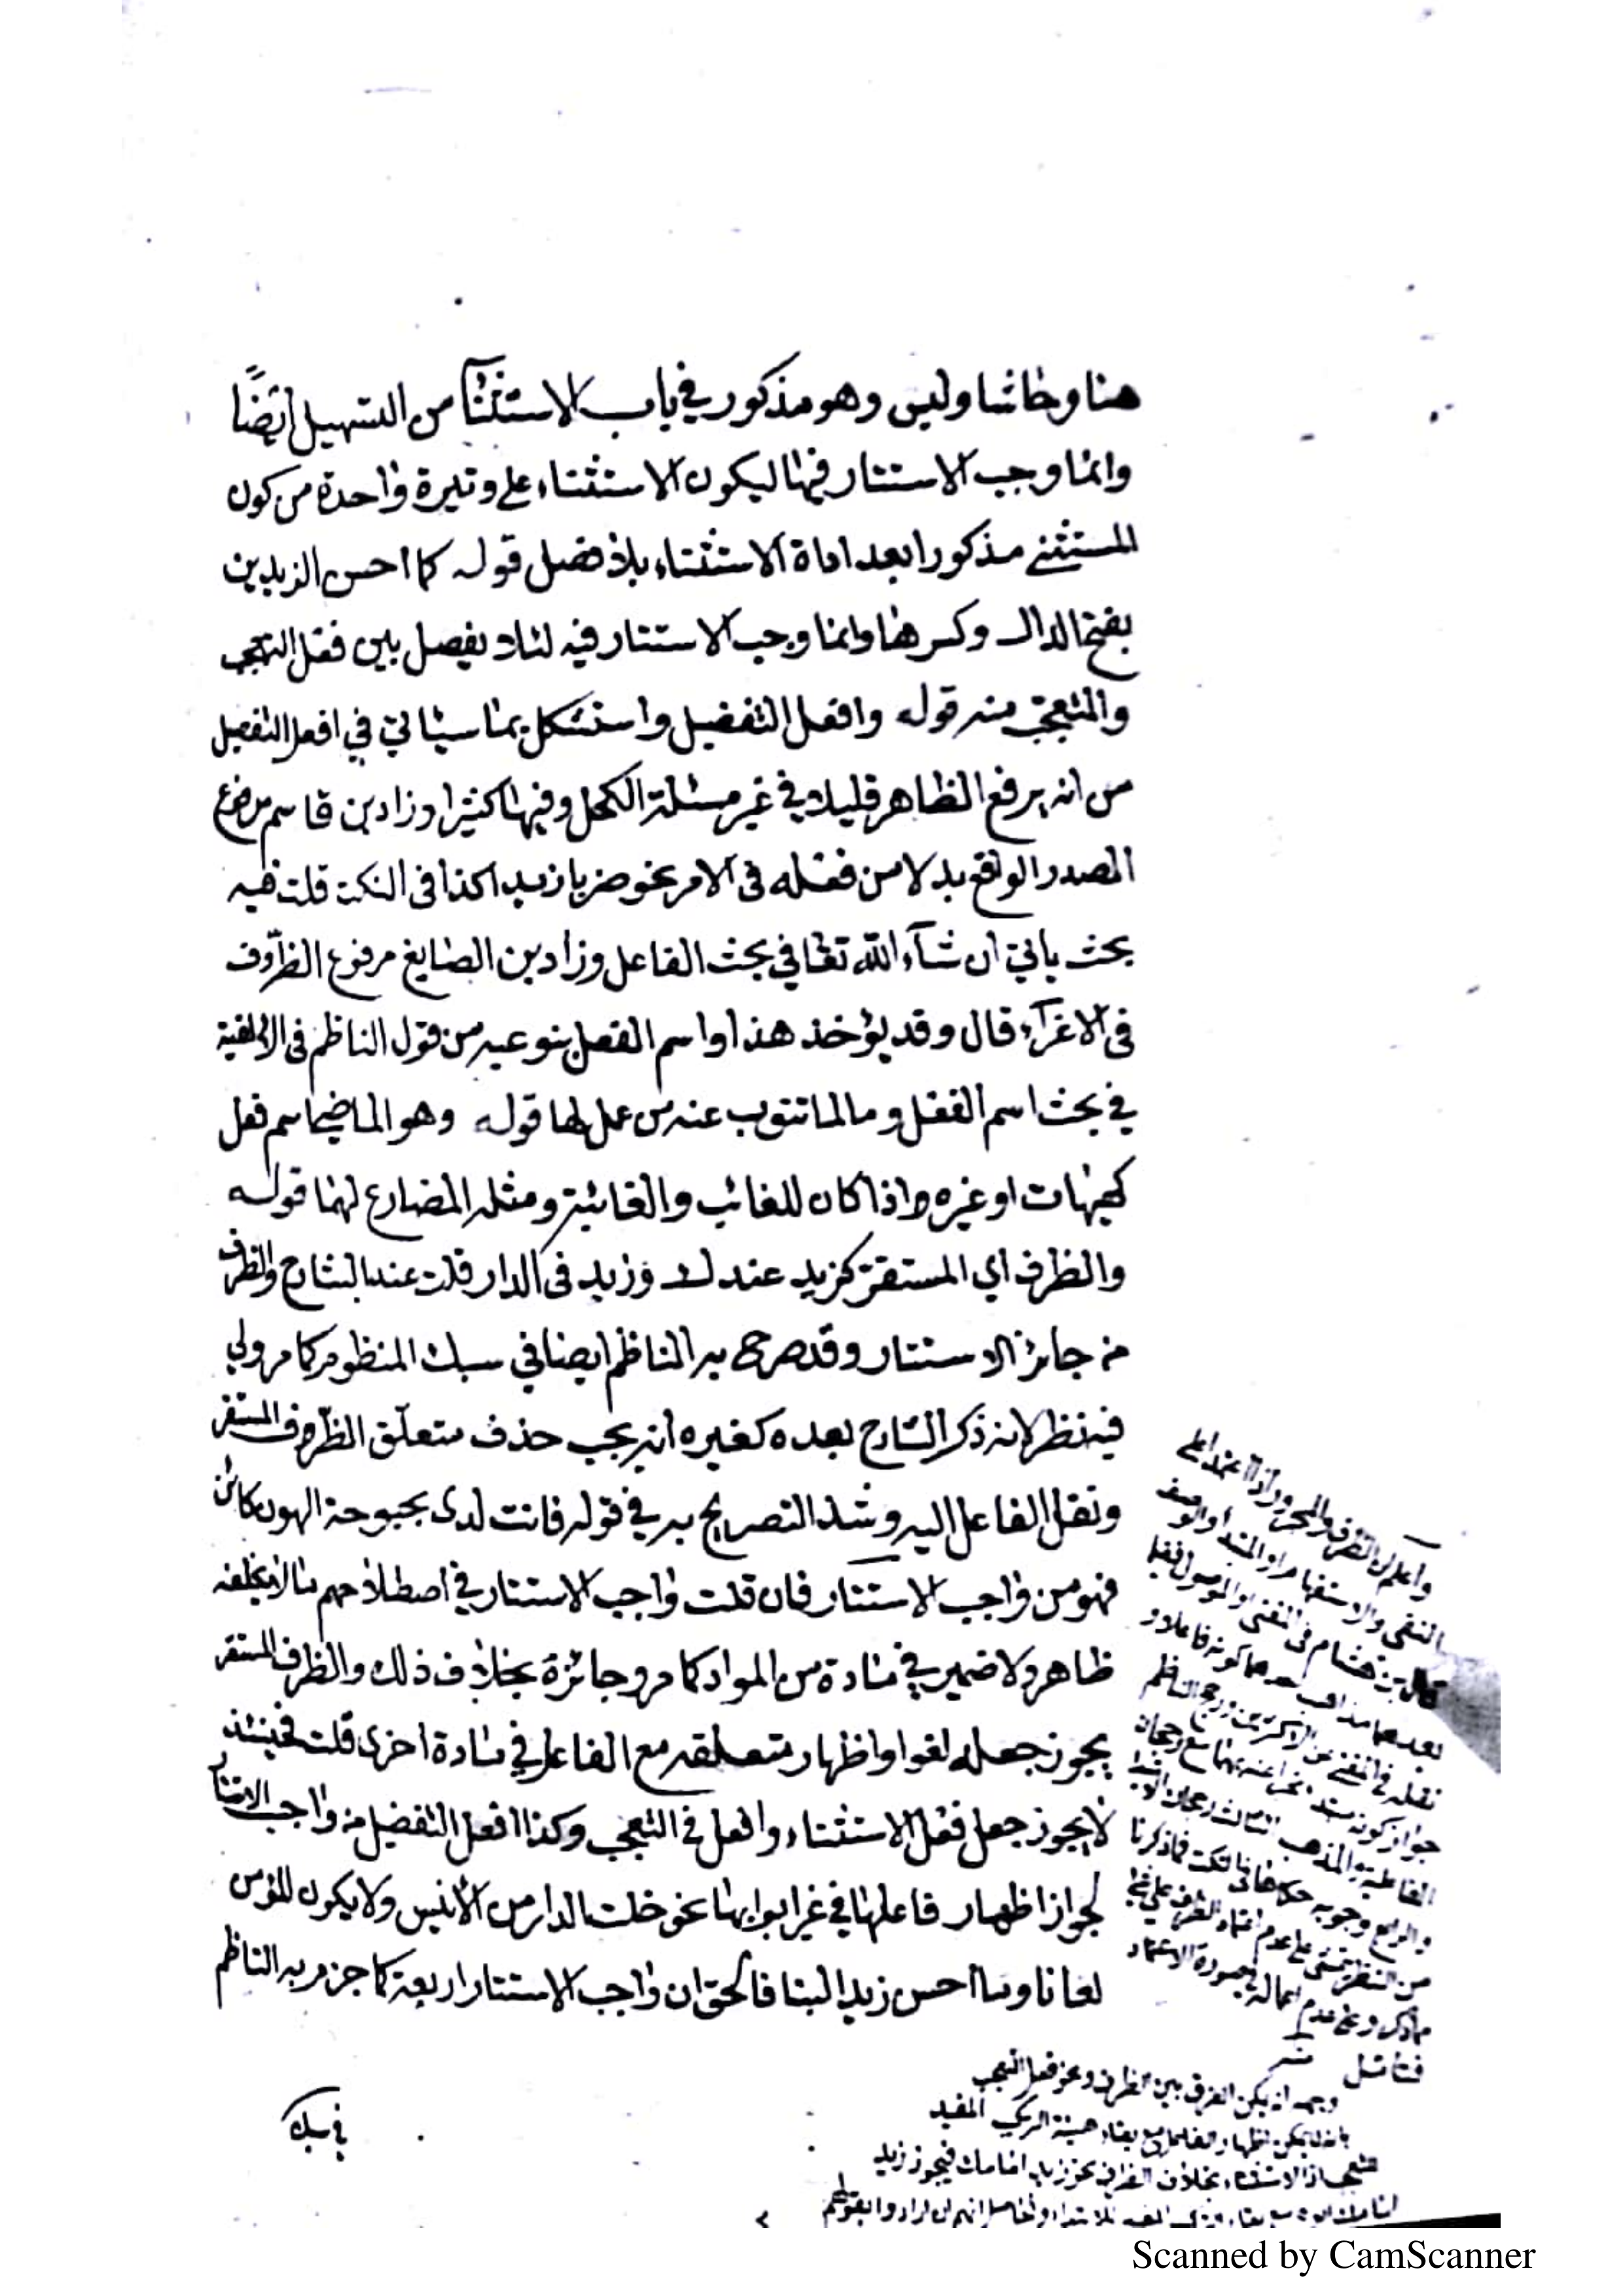 هنا وحاشا وليس وهو مذكور في باب الاستثنآ من التسهيل ايضًا
وانما وجب الاستتار فيها ليكون الاستثناء على وتيرة واحدة من كون
المستثنى مذكورا بعد اداة الاستثناء بلا فصل قوله كما احسن الزيدين
بفتح الدال وكسرها وانما وجب الاستتار فيه لئلا يفصل بين فعل التعجب
والمتعجب منه قوله وافعل التفضيل واستشكل بما سياتي في افعل التفضيل
من انه يرفع الظاهر قليلا في غير مسئلة الكحل وفيها كثيرا وزاد بن قاسم مرفوع
المصدر الواقع بدلا من فعله في الامر نحو ضربا زيدا كذا في النكت قلت فيه
بحث ياتي ان شآء الله تعا في بحث الفاعل وزاد بن الصايغ مرفوع الظروف
في الاغرآء قال وقد يؤخذ هذا واسم الفعل بنوعيه من قول الناظم في الالفية
في بحث اسم الفعل وما لما تنوب عنه من عمل لها قوله وهو الماضي اسم فعل
كهيهات او غيره واذا كان للغائب والغائبة ومثله المضارع لهما قوله
والظرف اي المستقر كزيد عندك وزيد في الدار قلت عند الشارح والظرف
من جائز الاستتار وقد صرح به الناظم ايضا في سبك المنظوم كما مر ولي
فيه نظر لانه ذكر الشارح بعده كغيره انه يجب حذف متعلق الظرف المستقر
ونقل الفاعل اليه وشذ التصريح به في قوله فانت لدى بحبوحة الهون كائن
فهو من واجب الاستتار فان قلت واجب الاستتار في اصطلاحهم ما لا يخلفه
ظاهر ولا ضمير في مادة من المواد كما مر وجائزه بخلاف ذلك والظرف المستقر
يجوز جعله لغوا واظهار متعلقه مع الفاعل في مادة اخرى قلت فحينئذ
لا يجوز جعل فعل الاستثناء وافعل في التعجب وكذا افعل التفضيل من واجب الاستتار
لجواز اظهار فاعلها في غير ابوابها نحو خلت الدار من الأنيس ولا يكون للمؤمن
لعانا وما احسن زيد البتا فالحق ان واجب الاستتار اربعة كما جزم به الناظم
في سبك
واعلم ان الظرف والمجرور اذا اعتمدا على
النفي والاستفهام او المبتدا او الموصوف
قال بن هشام في المغني او الموصول ففيما
بعدهما مذاهب احدهما كونه فاعلا و
نقله في المغني عن الاكثرين ورجح الناظم
والمذهب الثالث
والرابع وجوبه
فتامل منه
وجهه انه يمكن الفرق بين الظرف ونحو فعل التعجب
بانه لا يمكن اظهار الفاعل مع بقاء هيئة التركيب المفيد
للتعجب او الاستثناء بخلاف الظرف نحو زيد امامك فيجوز زيد
Scanned by CamScanner